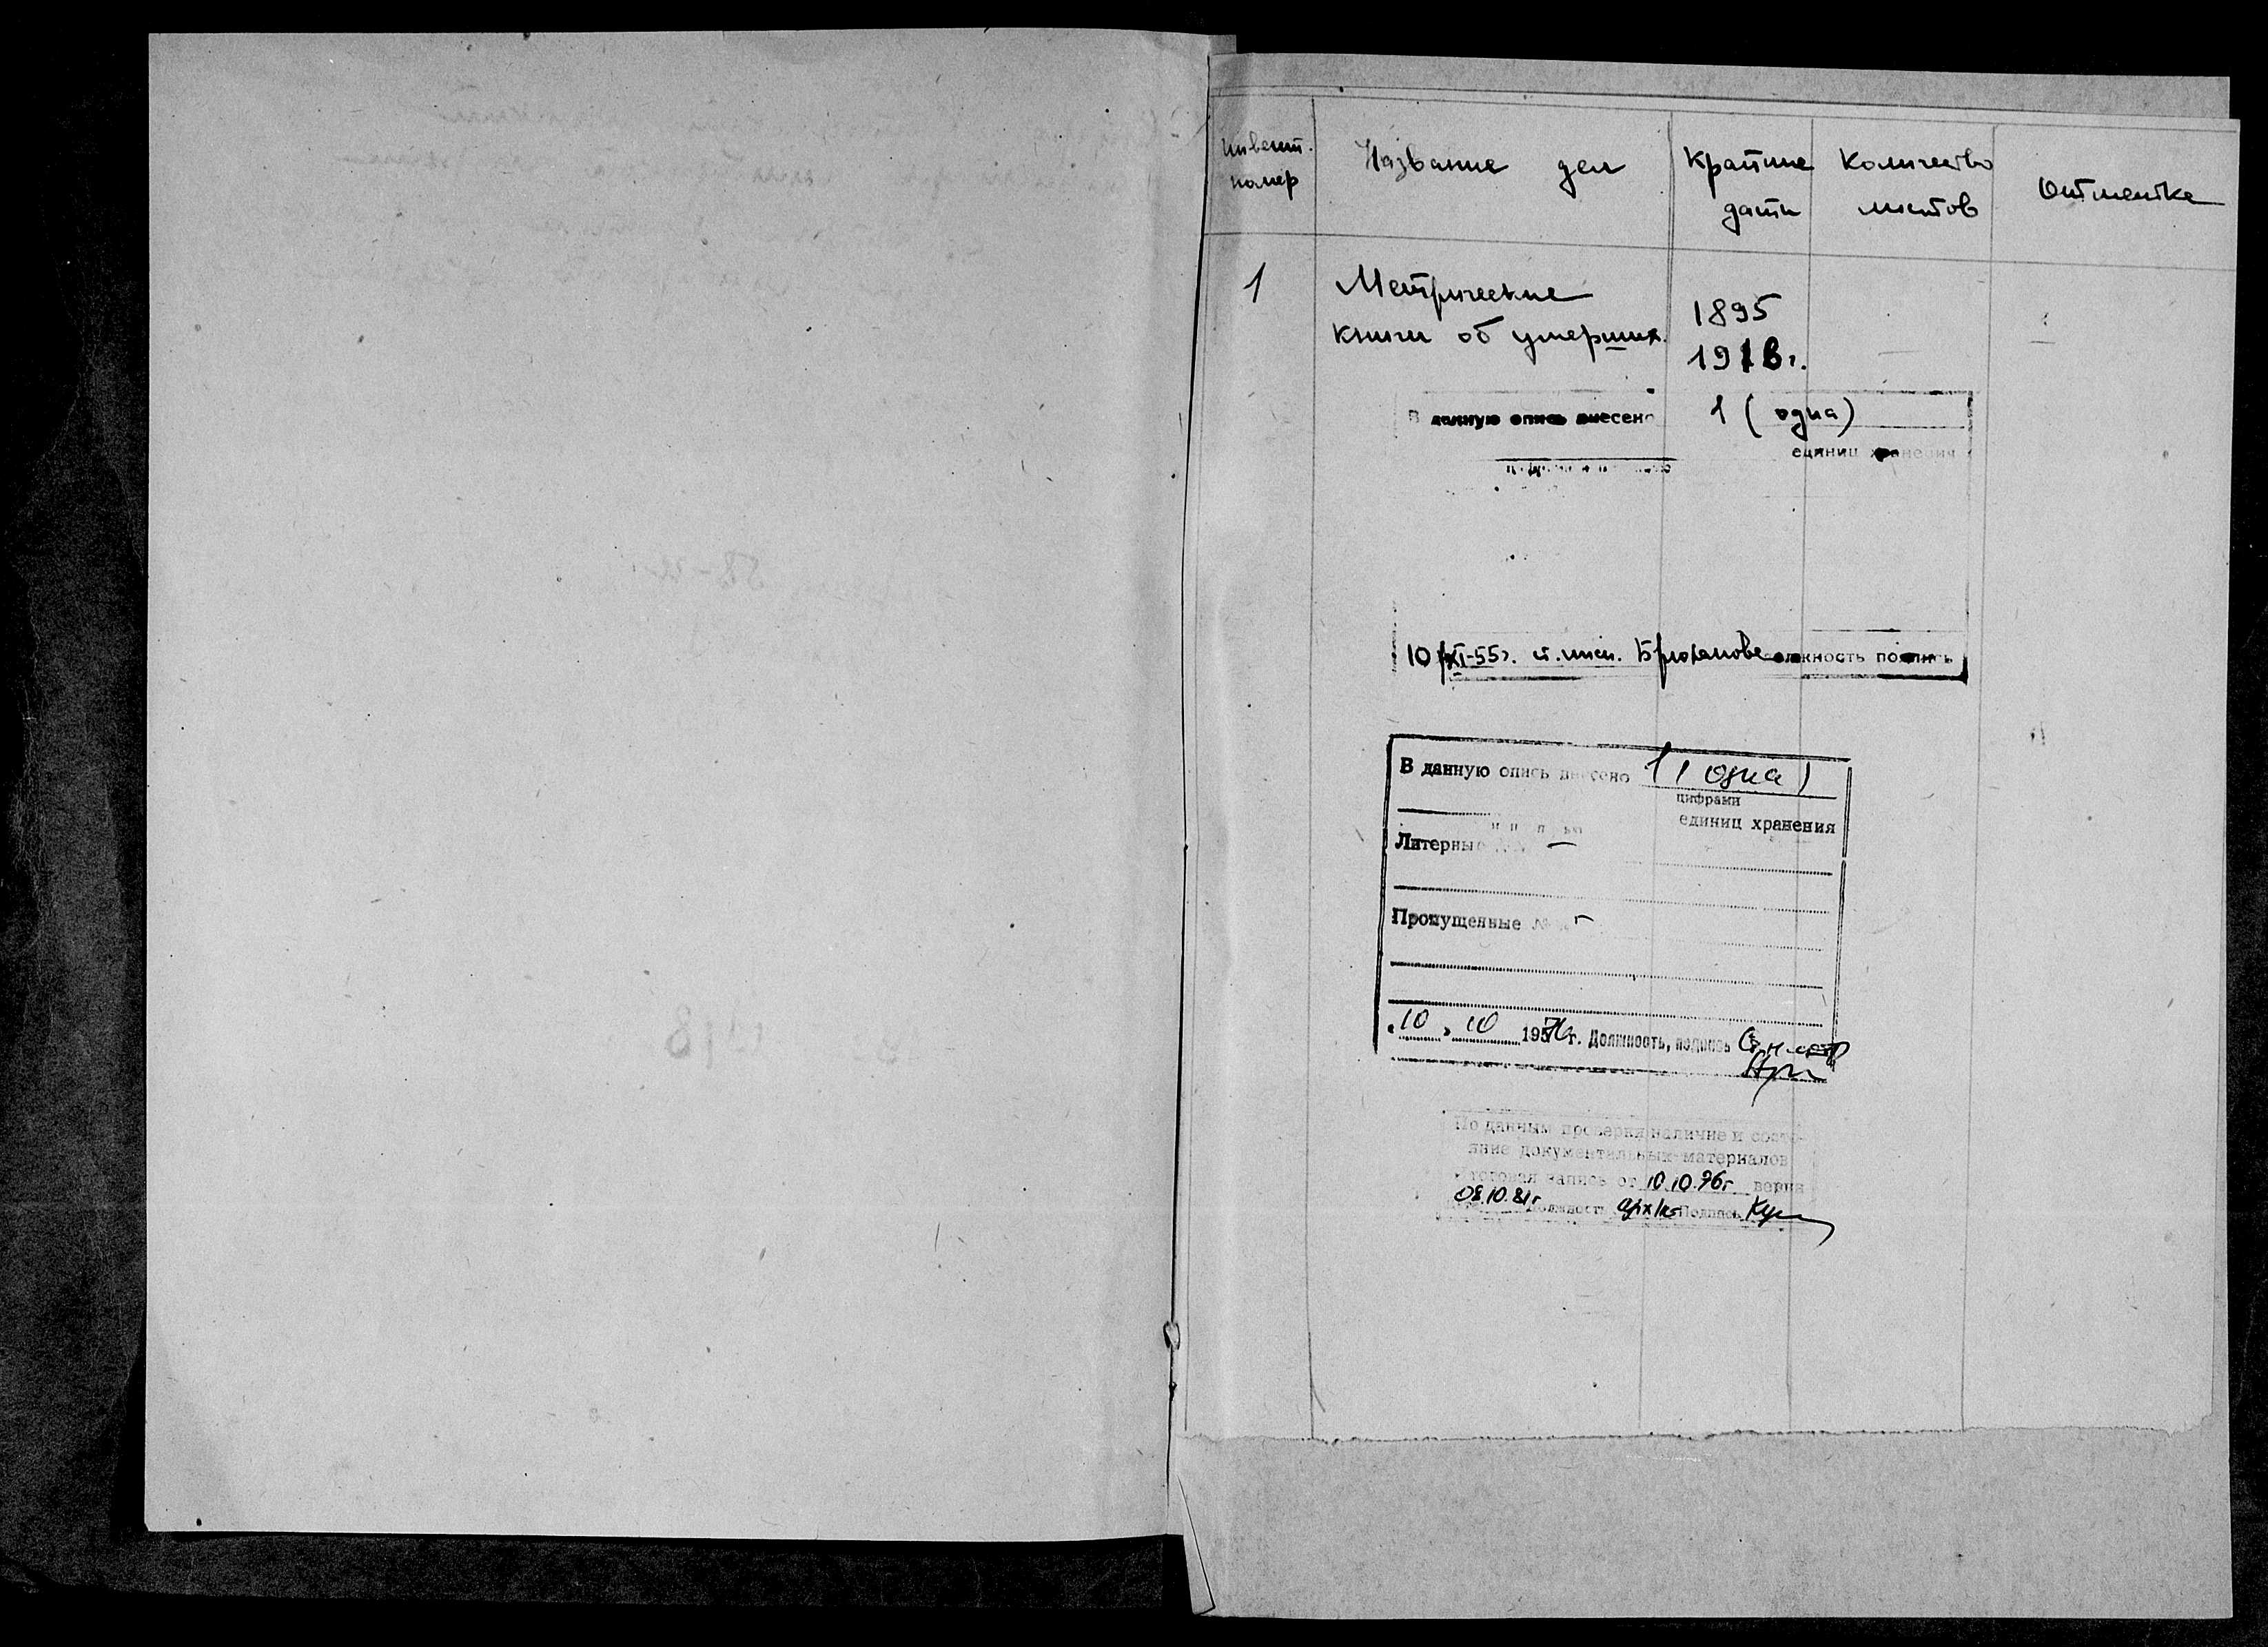 Инвент. номер
Название дел
Крайние даты
Количество листов
Отметка
1
Метрические
книги об умерших.
1895
191
В данную опись внесено 1 (одна)
единиц хранения
10/XI-55г.
должность подпись
В данную опись внесено 1 (одна)
цифрами
единиц хранения
Литерные —
Пропущенные
"10" 10 1976г. Должность, подпись
По данным проверки наличие и состо-
яние документальных материалов
итоговая запись от 10.10.76г. верна
08.10.81г. Должность Подпись